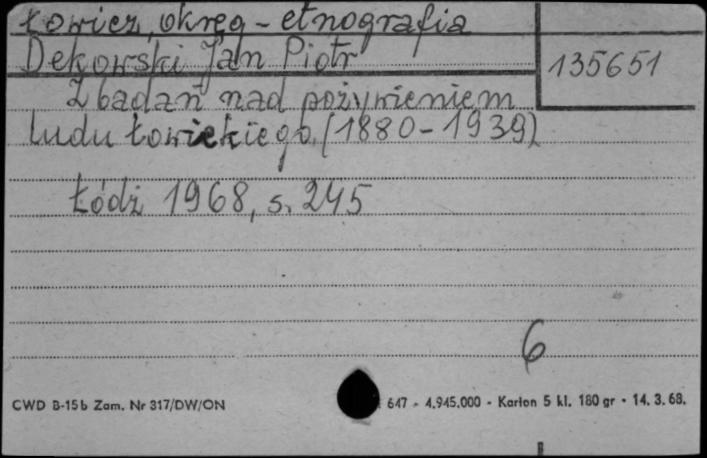 Łowicz, okręg - etnografia
Dekowski Jan Piotr
135651
Z badań nad pożywieniem
ludu łowickiego (1880-1939)
Łódź 1968, s. 245
6
CWD B-15b Zam. Nr 317/DW/ON
647 - 4.945.000 - Karton 5 kl. 180 gr - 14. 3. 68.